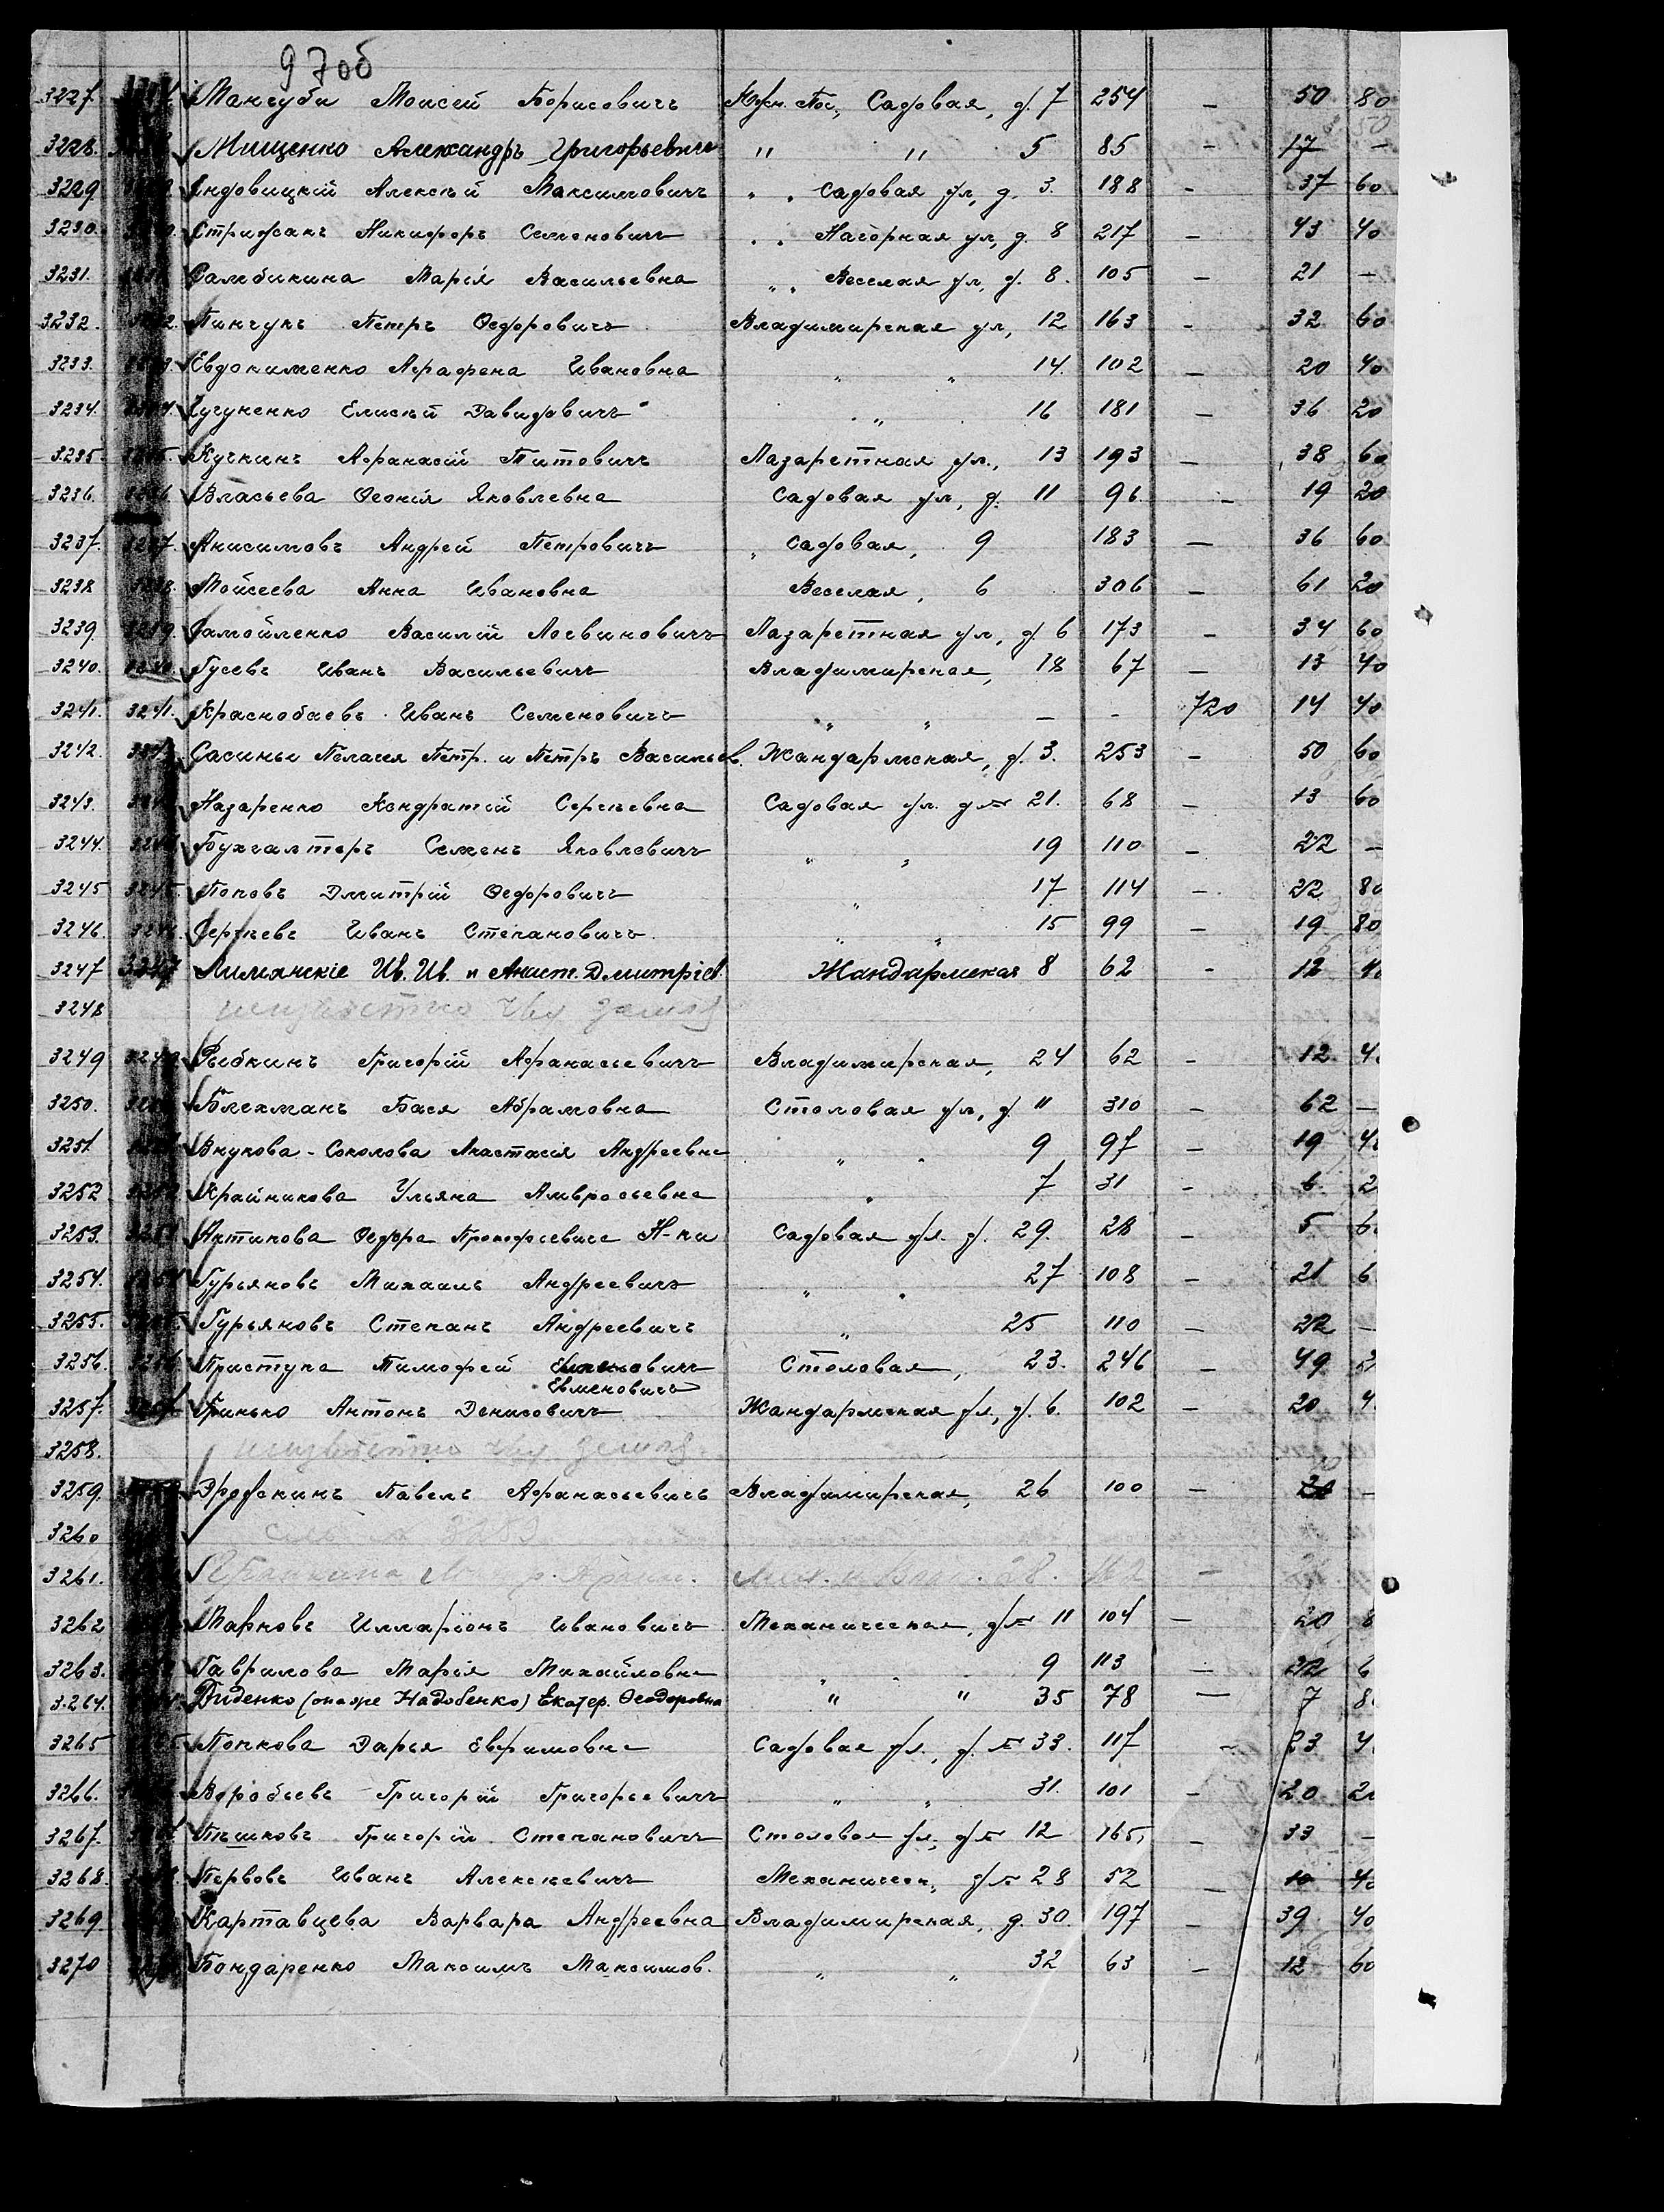 97об
3227. Мангуби Моисей Борисовичъ Южн. Пос., Садовая, д. 7 254 — 50 80
3228. Мищенко Александръ Григорьевичъ " " 5 85 — 17 —
3229. Яндовицкій Алексѣй Максимовичъ " " Садовая ул, д. 3. 188 — 37 60
3230. Стрижакъ Никифоръ Семеновичъ " " Нагорная ул, д. 8 217 — 43 40
3231. Самбикина Марія Васильевна " " Веселая ул, д. 8. 105 — 21 —
3232. Пинчукъ Петръ Ѳедоровичъ Владимирская ул, 12 163 — 32 60
3233. Евдокименко Аграфена Ивановна " " 14. 102 — 20 40
3234. Гугуненко Елисѣй Давидовичъ " " 16 181 — 36 20
3235. Кучкинъ Афанасій Титовичъ Лазаретная ул., 13 193 — 38 60
3236. Власьева Ѳеонія Яковлевна Садовая ул, д. 11 96 — 19 20
3237. 3237. Анисимовъ Андрей Петровичъ " Садовая, 9 183 — 36 60
3238 3238. Мойсеева Анна Ивановна Веселая, 6 306 — 61 20
3239 3239. Самойленко Василій Логвиновичъ Лазаретная ул, д. 6 173 — 34 60
3240. Гусевъ Иванъ Васильевичъ Владимирская, 18 67 — 13 40
3241. 3241. Краснобаевъ Иванъ Семеновичъ " " — - 720 14 40
3242. Сасины Пелагея Петр. и Петръ Васильев. Жандармская, д. 3. 253 — 50 60
3243. Назаренко Кондратій Сергѣевна Садовая ул. д № 21. 68 — 13 60
3244. Бухгалтеръ Семенъ Яковлевичъ " " 19 110 — 22 —
3245 3245. Поповъ Дмитрій Ѳедоровичъ " 17 114 — 22 80
3246. 3246. Сергѣевъ Иванъ Степановичъ " " 15 99 — 19 80
3247 3247 Лимянскіе Ив. Ив. и Анист. Дмитріев Жандармская 8 62 - 12
3248 неизвѣстно чья земля
3249 3249 Рыбкинъ Григорій Афанасьевичъ Владимирская, 24 62 — 12
3250. Блехманъ Бася Абрамовна Столовая ул, д. 11 310 — 62 —
3251 Внукова-Соколова Анастасія Андреевна " " 9 97 — 19
3252 Крайникова Ульяна Амвросьевна " 7 31 — 6
3253. Актикова Ѳедора Прокофьевича Н-ки Садовая ул. д. 29. 28 — 5
3254. Гурьяновъ Михаилъ Андреевичъ " " 27 108 — 21
3255. Гурьяновъ Степанъ Андреевичъ " 25 110 — 22 —
3256. Приступа Тимофей Евменовичъ Столовая, 23. 246 — 49
3257. Гринько Антонъ Денисовичъ Жандармская ул, д. 6. 102 — 20
3258. неизвѣстно чья земля
3259. Дрофкинъ Павелъ Афанасьевичъ Владимирская, 26 100 — 20 —
3260
3261. 28. —
3262 Марковъ Илларіонъ Ивановичъ Механическая, д № 11 104 — 20
3263. Гаврилова Марія Михайловна " " 9 113 — 22
3264. Диденко (она же Надобенко) Екатер. Ѳеодоровна " " 35 78 — 7
3265 Попкова Дарья Ефимовна Садовая ул., д. № 33. 117 — 23
3266. Воробьевъ Григорій Григорьевичъ " " 31. 101 — 20
3267. Пѣшковъ Григорій Степановичъ Столовая ул, д № 12 165 — 33 —
3268. Первовъ Иванъ Алексѣевичъ Механическ, д № 28 52 — 10 40
3269. Картавцева Варвара Андреевна Владимирская, д. 30. 197 — 39 40
3270 Бондаренко Максимъ Максимов. " " 32 63 — 12 60